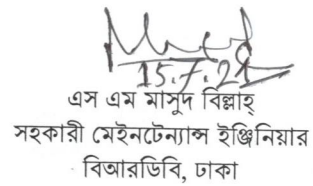 15.7.21
এস এম মাসুদ বিল্লাহ্
সহকারী মেইনটেন্যান্স ইঞ্জিনিয়ার
বিআরডিবি, ঢাকা